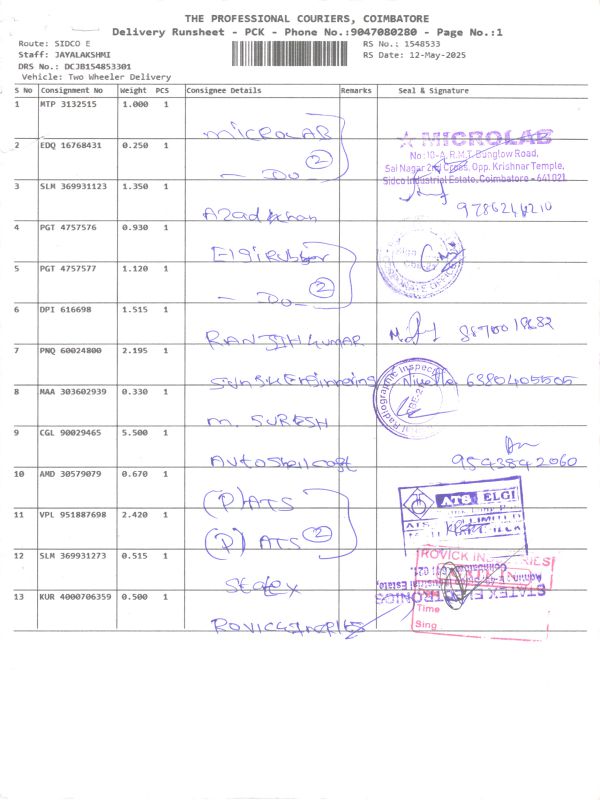 THE PROFESSIONAL COURIERS, COIMBATORE
Delivery Runsheet - PCK - Phone No.:9047080280 - Page No.:1
Route: SIDCO E
Staff: JAYALAKSHMI
DRS No.: DCJB154853301
Vehicle: Two Wheeler Delivery
RS No.: 1548533
RS Date: 12-May-2025
S No Consignment No Weight PCS Consignee Details Remarks Seal & Signature
1 MTP 3132515 1.000 1 microLAB
★ MICROLAB
No:10-A, R.M.T. Bunglow Road,
Sai Nagar 2nd Cross, Opp. Krishnar Temple,
Sidco Industrial Estate, Coimbatore - 641 021.
2 EDQ 16768431 0.250 1 - Do - 2
3 SLM 369931123 1.350 1 Azad khan
4 PGT 4757576 0.930 1 Elgi rubber
5 PGT 4757577 1.120 1 - Do - 2
6 DPI 616698 1.515 1 RANJITH KUMAR
7 PNQ 60024800 2.195 1 Engineering 6380405505
8 MAA 303602939 0.330 1 M. SURESH
Radiographic Inspec
9 CGL 90029465 5.500 1 9543842060
10 AMD 30579079 0.670 1 (P) ATS
ATS ELGI
11 VPL 951887698 2.420 1 (P) ATS 2
12 SLM 369931273 0.515 1 Statex
ROVICK IN RIES
STATEX EL TRONICS
Coimbatore 641 021.
13 KUR 4000706359 0.500 1
Time
Sing